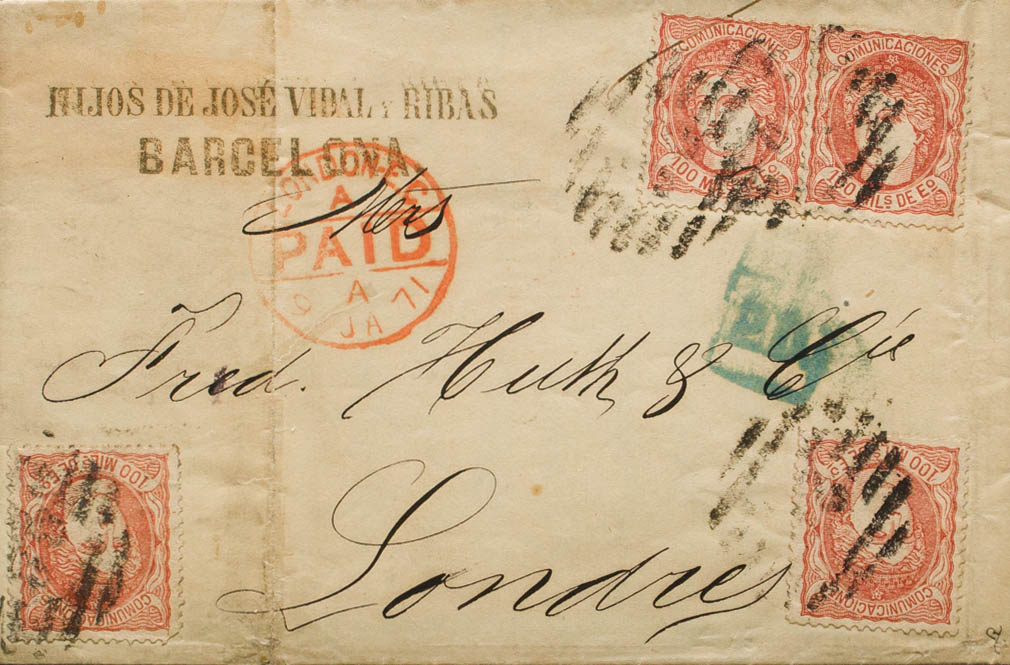 HIJOS DE JOSÉ VIDAL Y RIBAS
BARCELONA
COMUNICACIONES
100 MILS DE EO
COMUNICACIONES
100 MILS DE EO
LONDON-EC
A
PAID
9 A 71
JA
Mrs
Fred. Huth & Cie
Londres
100 MILS DE EO
COMUNICACIONES
100 MILS DE EO
COMUNICACIONES